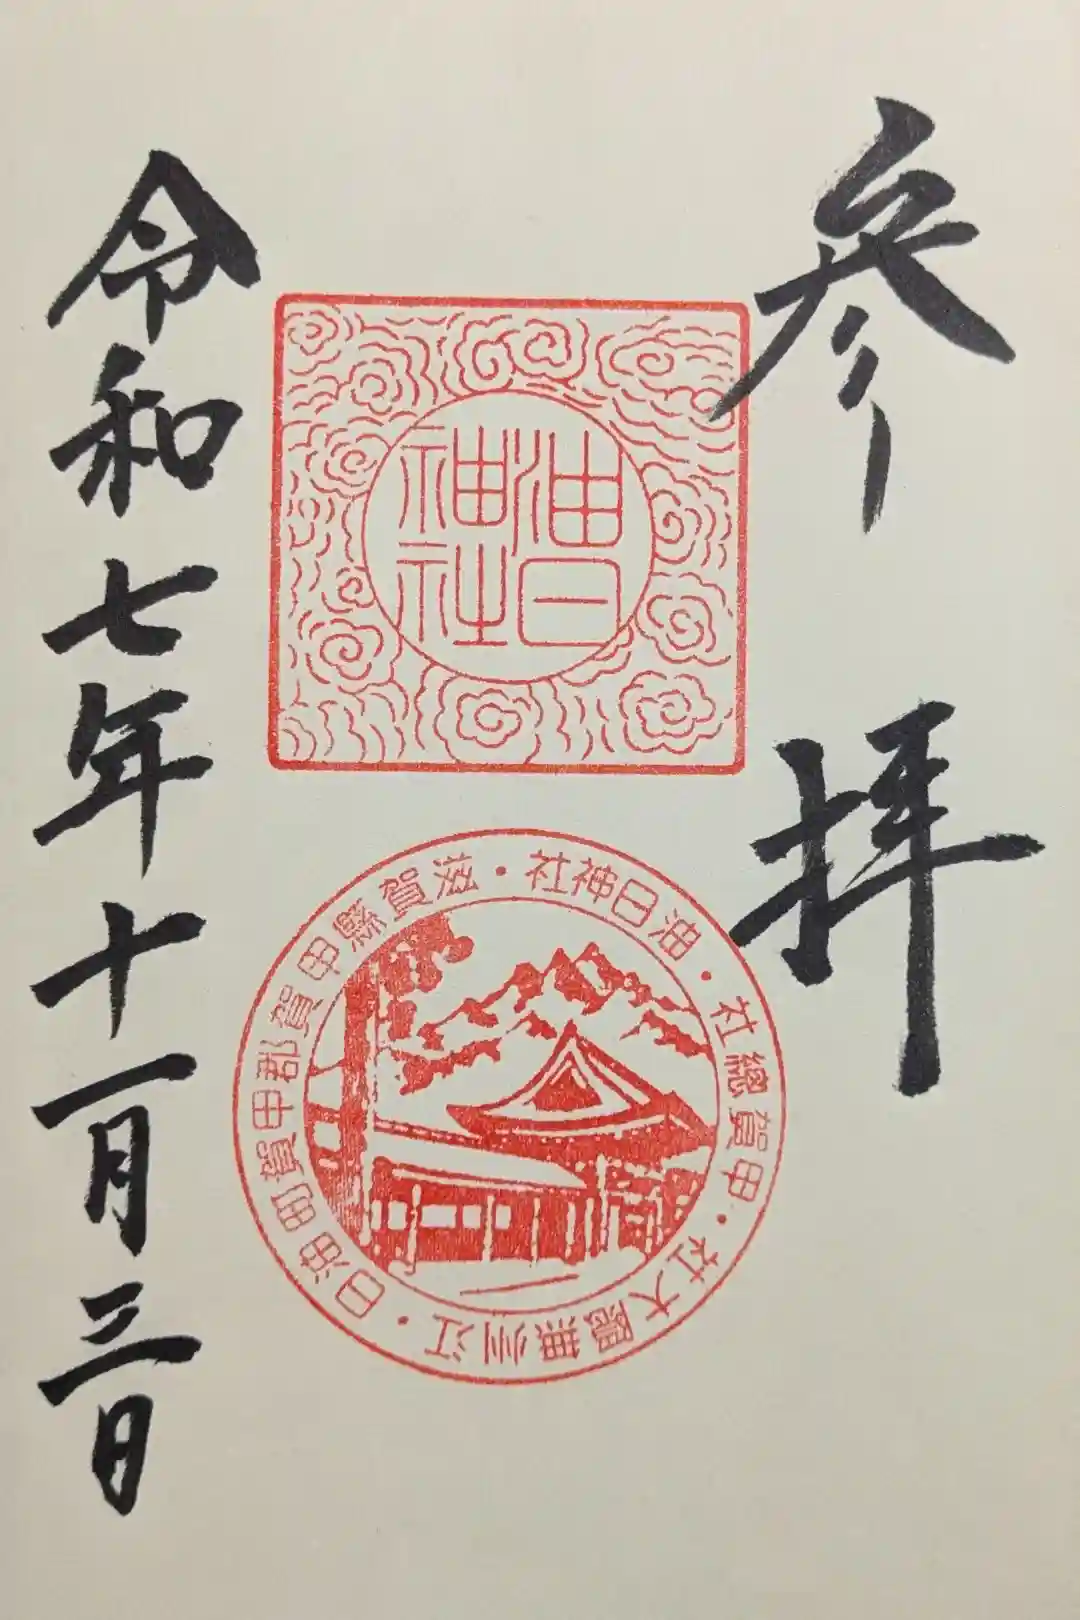 参拝
油日
神社
油日神社・滋賀縣甲賀郡甲賀町油日・江州無隅大社・甲賀總社・
令和七年十一月三日